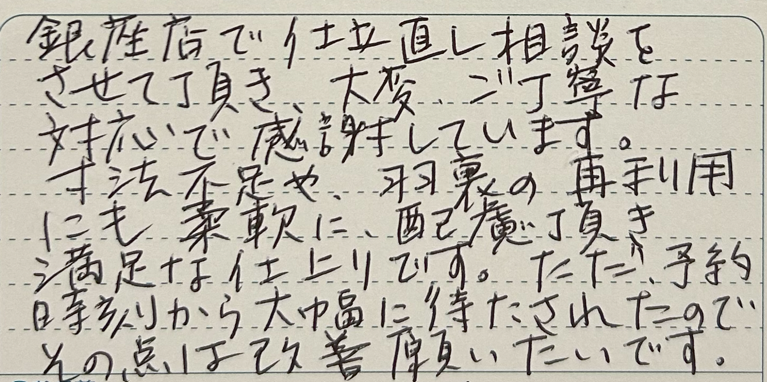 銀座店で仕立直し相談を
させて頂き、大変、ご丁寧な
対応で感謝しています。
寸法不足や、羽裏の再利用
にも柔軟に、配慮頂き
満足な仕上りです。ただ、予約
時刻から大幅に待たされたので
その点は改善願いたいです。